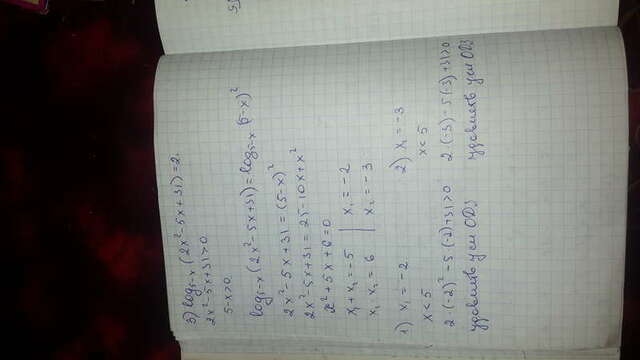 5) log₅₋ₓ(2x²-5x+31)=2.
2x²-5x+31>0
5-x>0
log₅₋ₓ(2x²-5x+31)=log₅₋ₓ(5-x)²
2x²-5x+31=(5-x)²
2x²-5x+31=25-10x+x²
x²+5x+6=0
x₁+x₂=-5 | x₁=-2
x₁x₂=6 | x₂=-3
1) x₁=-2 2) x₁=-3
x<5 x<5
2·(-2)²-5(-2)+31>0 2·(-3)-5(-3)+31>0
удовлетв усл ОДЗ удовлетв усл ОДЗ